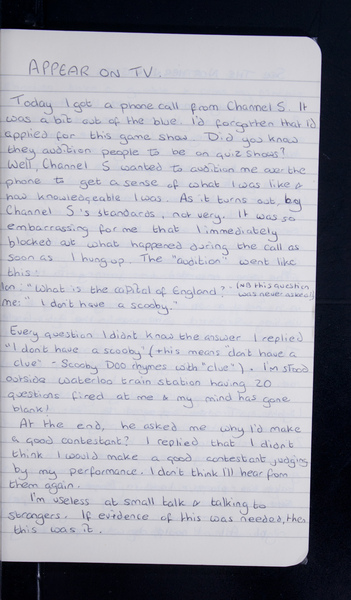 APPEAR ON TV
Today I got a phone call from Channel 5. It
was a bit out of the blue. I'd forgotten that I'd
applied for this game show. Did you know
they audition people to be on quiz shows?
Well, Channel 5 wanted to audition me over the
phone to get a sense of what I was like &
how knowledgeable I was. As it turns out, by
Channel 5's standards, not very. It was so
embarrassing for me that I immediately
blocked out what happened during the call as
soon as I hung up. The "audition" went like
this:
"What is the capital of England?". (NB this question
was never asked!)
me: "I don't have a scooby."
Every question I didn't know the answer I replied
"I don't have a scooby" (this means don't have a
clue" - Scooby Doo rhymes with "clue"). I'm stood
outside Waterloo train station having 20
questions fired at me & my mind has gone
blank!
At the end, he asked me why I'd make
a good contestant? I replied that I didn't
think I would make a good contestant judging
by my performance. I don't think I'll hear from
them again.
I'm useless at small talk & talking to
strangers. If evidence of this was needed, then
this was it.